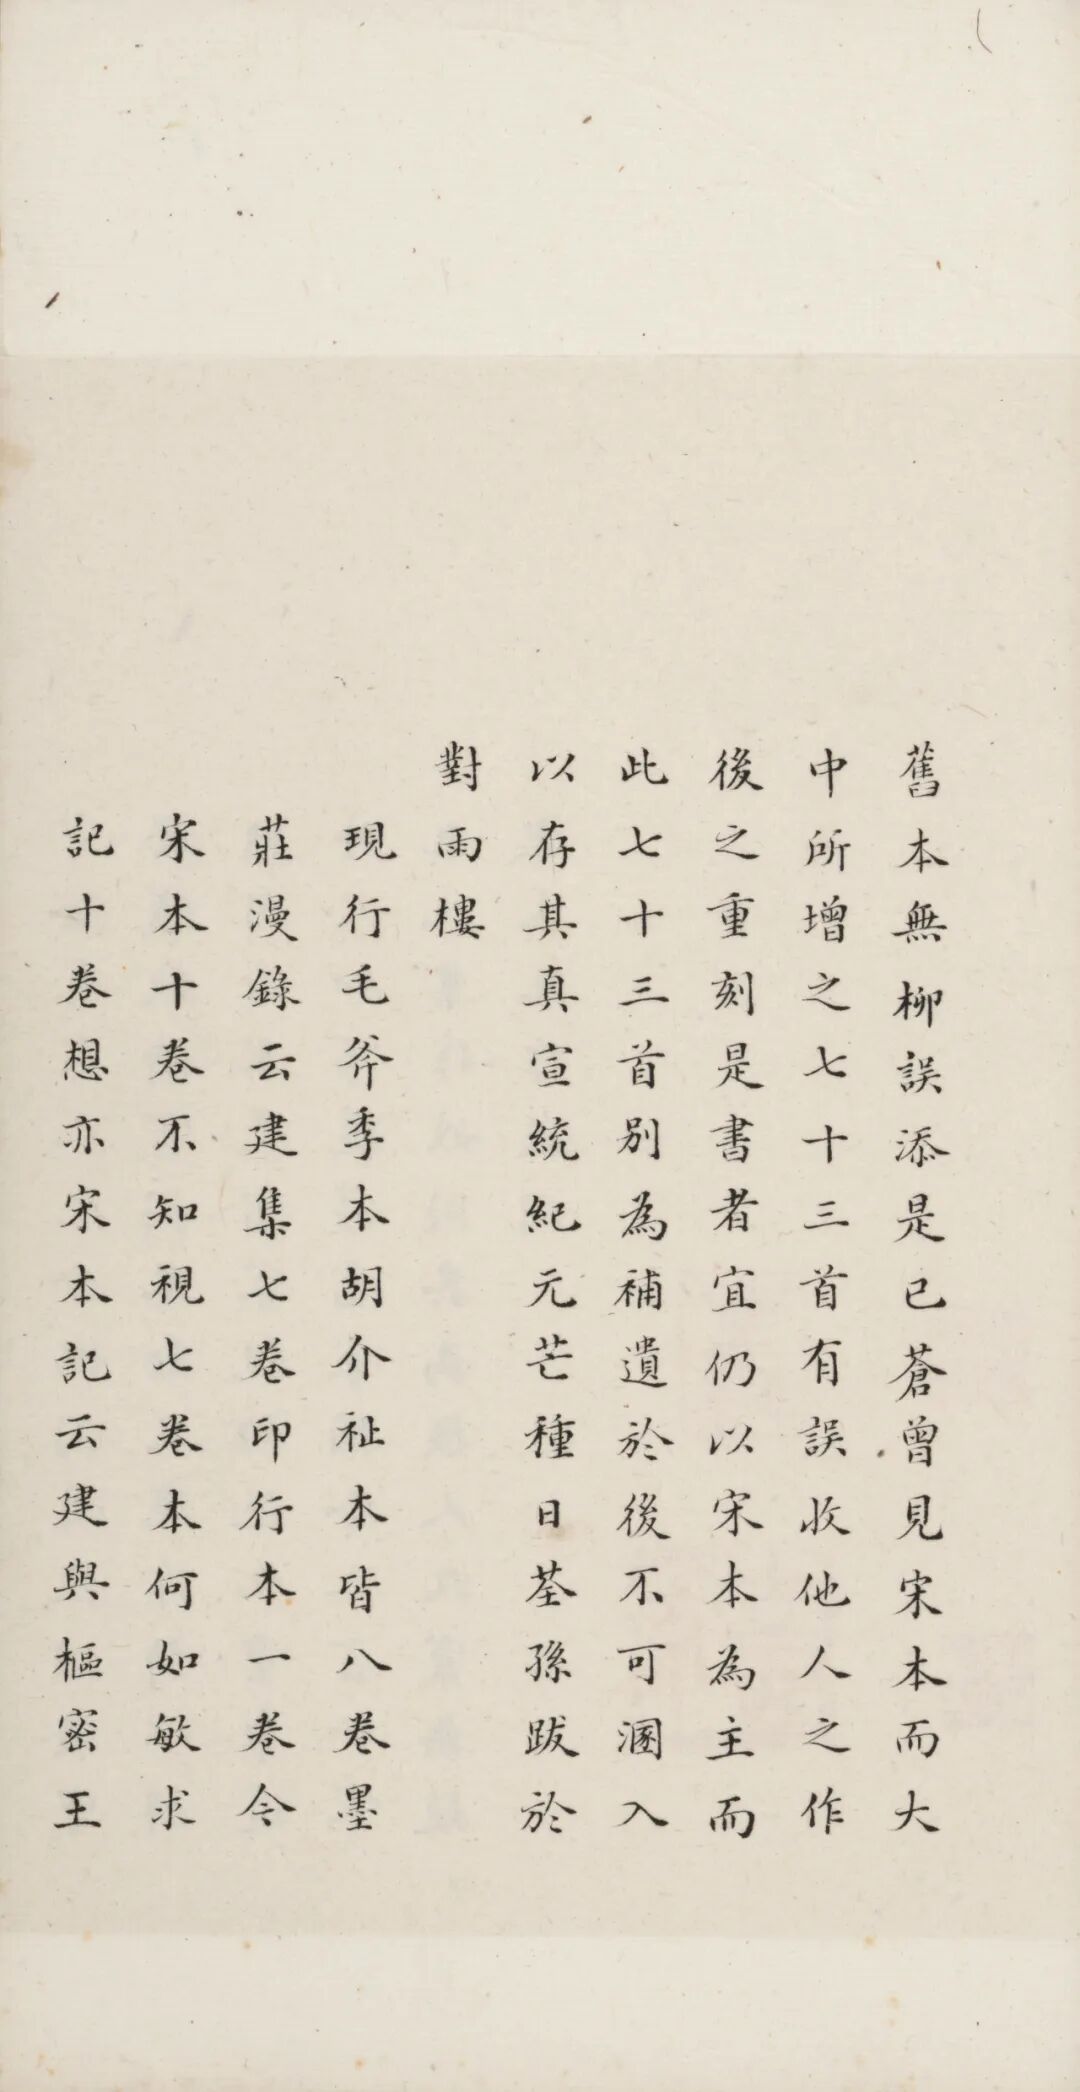 舊本無柳誤添是已蒼曾見宋本而大
中所增之七十三首有誤收他人之作
後之重刻是書者宜仍以宋本為主而
此七十三首別為補遺於後不可溷入
以存其真宣統紀元芒種日荃孫跋於
對雨樓
現行毛斧季本胡介祉本皆八卷墨
莊漫錄云建集七卷印行本一卷今
宋本十卷不知視七卷本何如敏求
記十卷想亦宋本記云建與樞密王